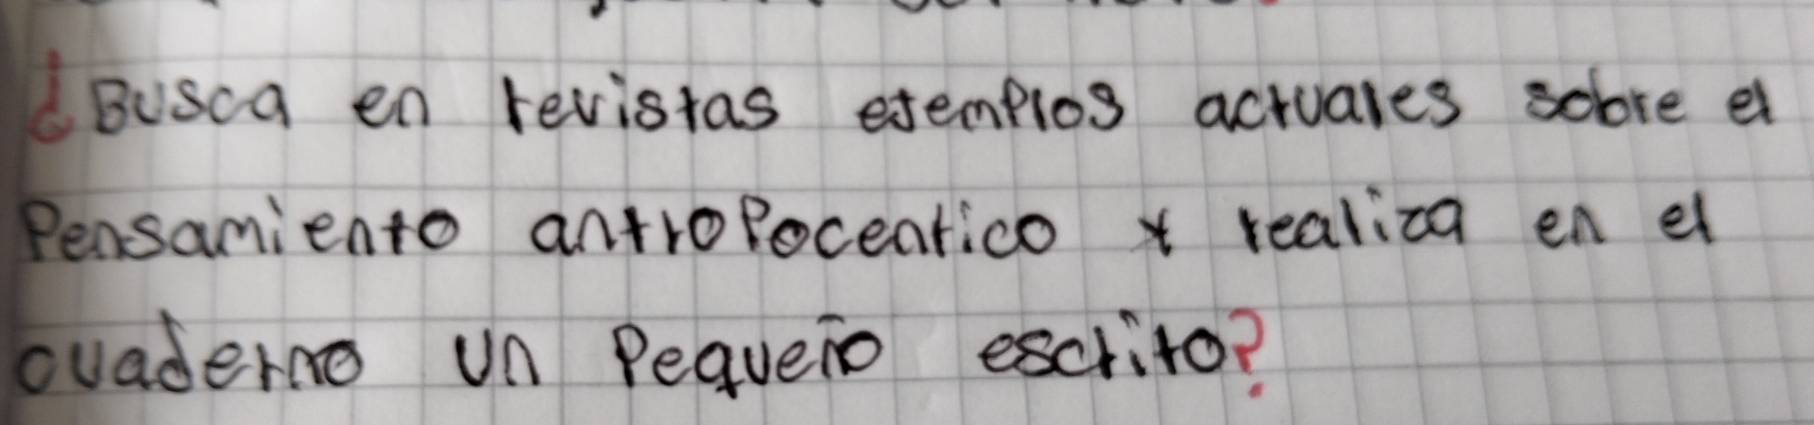 ¿Busca en revistas ejemplos actuales sobre el
Pensamiento antropocentico y realiza en el
cuaderno un Pequeño escrito?